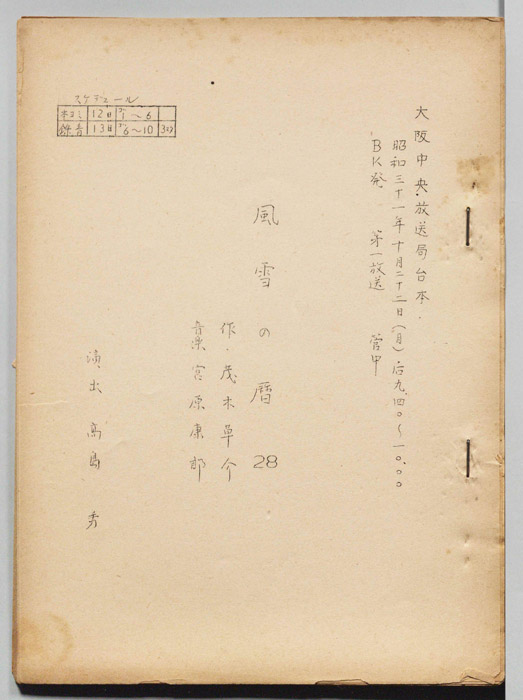 大阪中央放送局台本.
昭和三十一年十月二十二日(月)后九.四〇～一〇.〇〇
BK発 第一放送 管中
風雪の暦 28
作・茂木草介
音楽 宮原康郎
演出 高島 秀
スケジュール
本ヨミ 12日 1～6
録音 13日 6～10